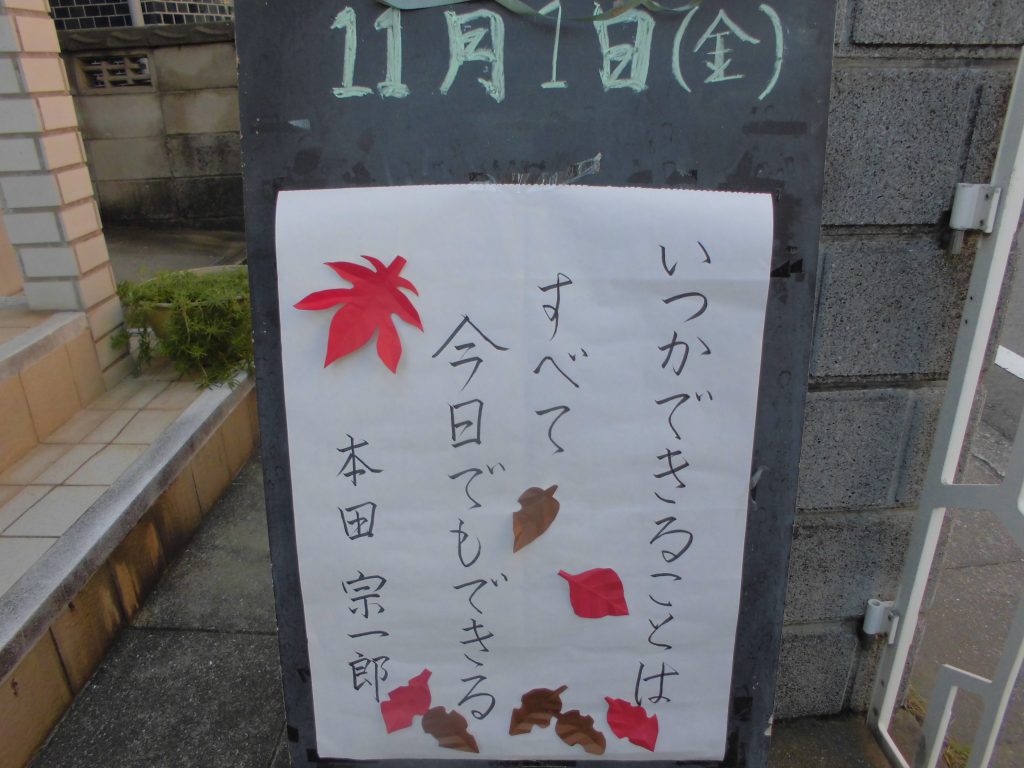 11月1日(金)
いつかできることは
すべて
今日でもできる
本田 宗一郎